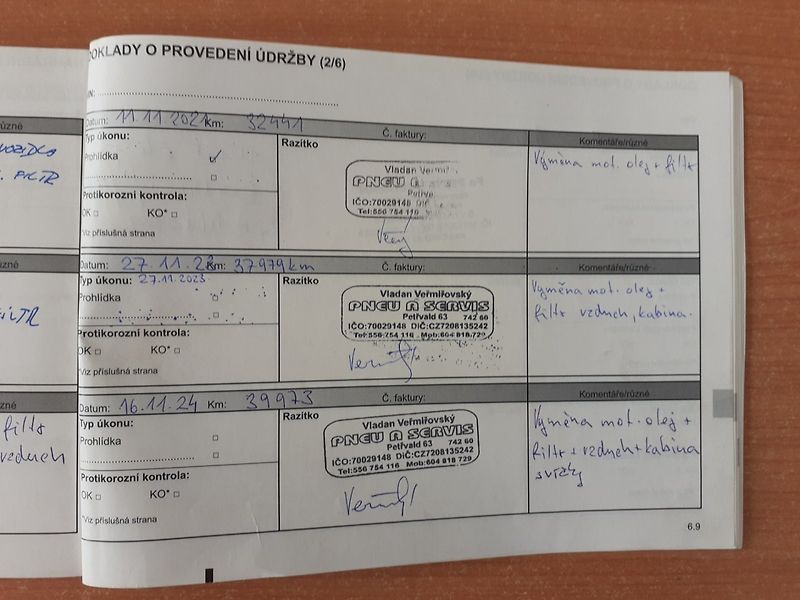 DOKLADY O PROVEDENÍ ÚDRŽBY (2/6)
Datum: 11.11.2021 Km: 32441
Č. faktury:
Komentáře/různé
Typ úkonu:
Prohlídka
Razítko
Vladan
PNEU A
Petřva
IČO:70029148 DIČ
Tel:556 754 116
Výměna mot. olej + filtr
Protikorozní kontrola:
OK KO*
*Viz příslušná strana
Datum: 27.11.23 Km: 37979 km
Č. faktury:
Komentáře/různé
Typ úkonu: 27.11.2023
Prohlídka
Razítko
Vladan Veřmiřovský
PNEU A SERVIS
Petřvald 63 742 60
IČO:70029148 DIČ:CZ7208135242
Tel:556 754 116 Mob:604 818 729
Výměna mot. olej +
filtr vzduch, kabina.
Protikorozní kontrola:
OK KO*
*Viz příslušná strana
Datum: 16.11.24 Km: 39973
Č. faktury:
Komentáře/různé
Typ úkonu:
Prohlídka
Razítko
Vladan Veřmiřovský
PNEU A SERVIS
Petřvald 63 742 60
IČO:70029148 DIČ:CZ7208135242
Tel:556 754 116 Mob:604 818 729
Výměna mot. olej +
filtr + vzduch + kabina
svíčky
Protikorozní kontrola:
OK KO*
*Viz příslušná strana
6.9
FILTR
filtr
vzduch